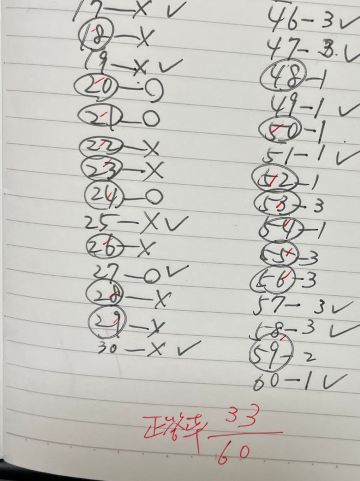 17-X ✓
18-X
19-X ✓
20-O
21-O
22-X
23-X
24-O
25-X ✓
26-X
27-O ✓
28-X
29-X
30-X ✓
46-3 ✓
47-3 ✓
48-1
49-1 ✓
50-1
51-1 ✓
52-1
53-3
54-1
55-3
56-3
57-3 ✓
58-3 ✓
59-2
60-1 ✓
正答率 33/60